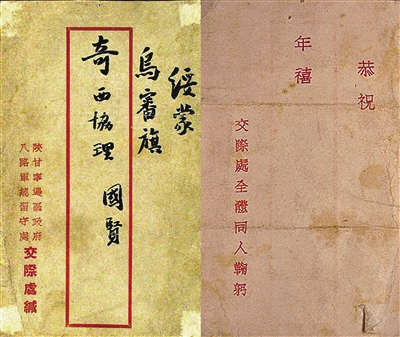 綏蒙
烏審旗
奇西協理國賢
陝甘寧邊區政府
八路軍總留守處
交際處緘
恭祝
年禧
交際處全體同人鞠躬